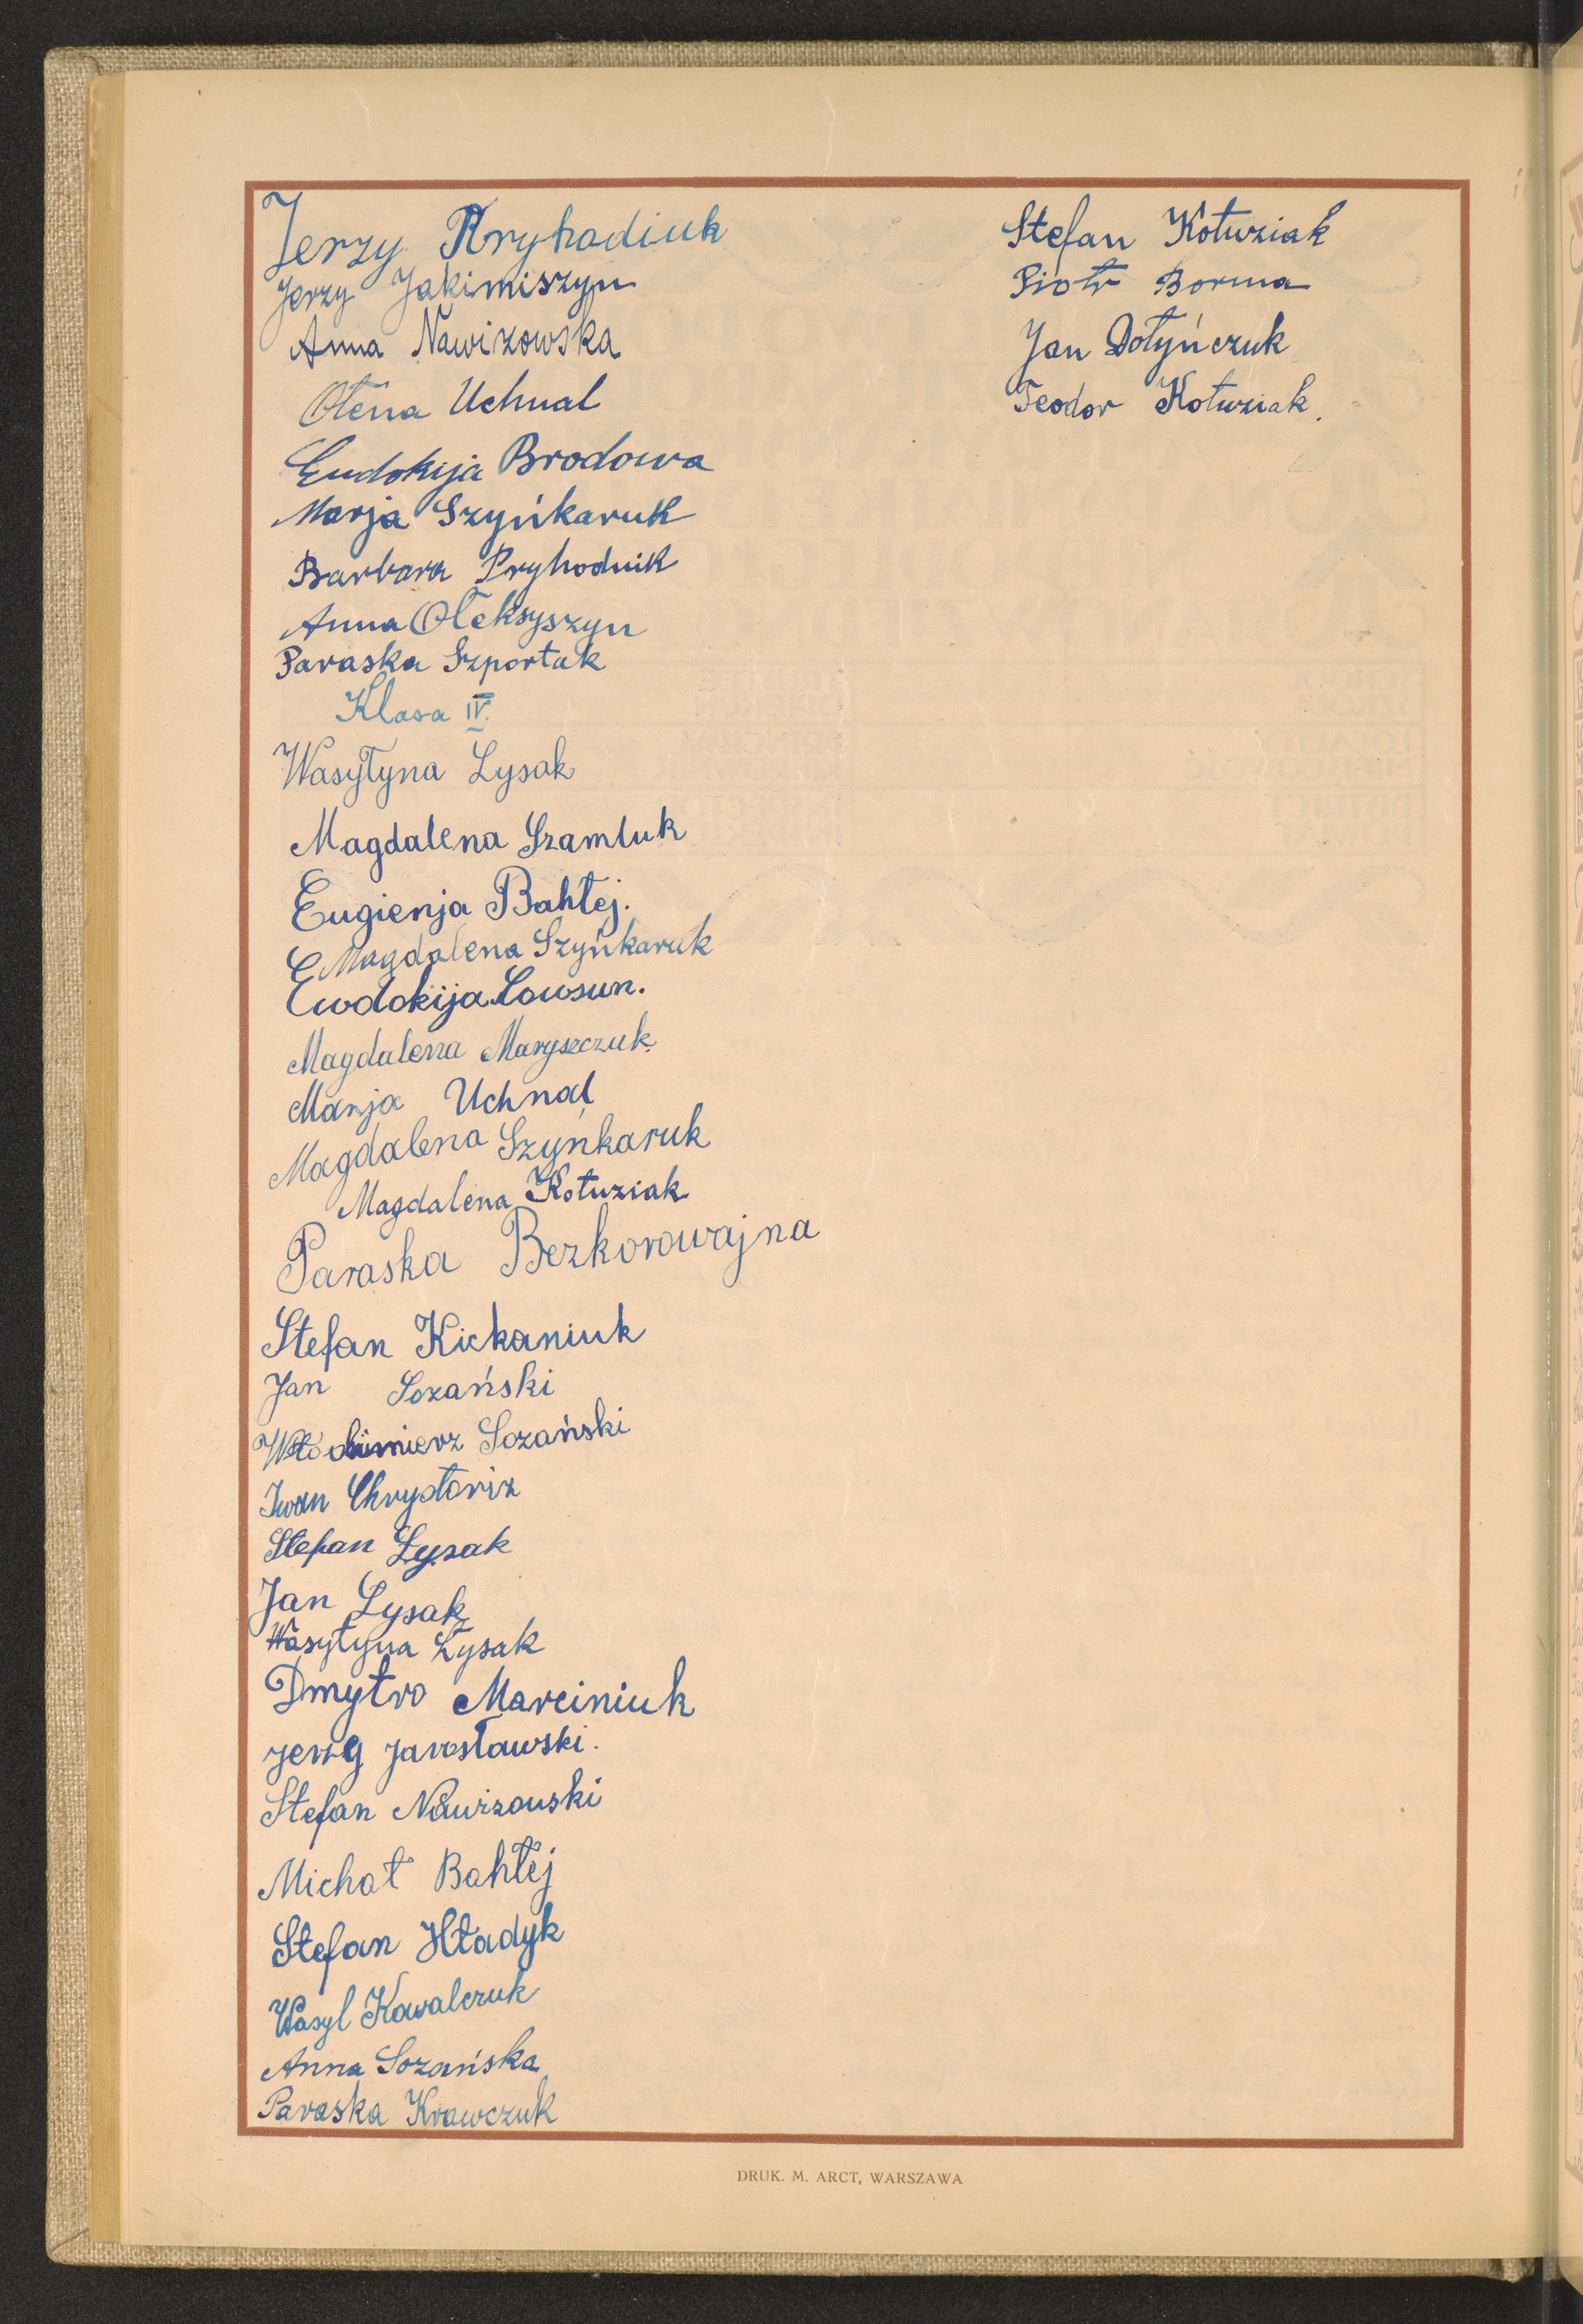 Jerzy Pryhodiuk
Jerzy Jakimiszyn
Anna Nawizowska
Ołena Uchnal
Eudokija Brodowa
Marja Szyńkaruk
Barbara Pryhodnik
Anna Ołeksyszyn
Paraska Szportak
Klasa IV.
Wasyłyna Łysak
Magdalena Szamluk
Eugienja Bahłej.
Magdalena Szyńkaruk
Ewdokija Lowsun.
Magdalena Maryszczuk.
Marja Uchnal
Magdalena Szyńkaruk
Magdalena Kotuziak
Paraska Bezkorowajna
Stefan Kickaniuk
Jan Sozański
Włodzimierz Sozański
Iwan Chrystoriz
Stefan Łysak
Jan Łysak
Wasyłyna Łysak
Dmytro Marciniuk
Jerzy Jarosławski.
Stefan Nawizowski
Michał Bahłej
Stefan Hładyk
Wasyl Kowalczuk
Anna Sozańska
Paraska Krawczuk
Stefan Kotuziak
Piotr Borma
Jan Dołyńczuk
Teodor Kotuziak.
DRUK. M. ARCT, WARSZAWA